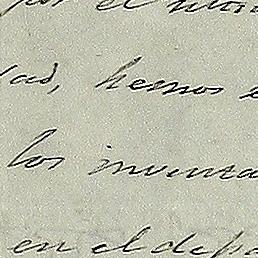 por el
dad, hemos e
los inventa
en el depa